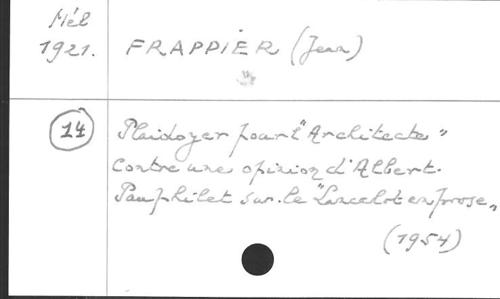 Mél
1921. FRAPPIER (Jean)
14
Plaidoyer pour l'"Architecte"
contre une opinion d'Albert.
Pauphilet sur le "Lancelot en prose"
(1954)